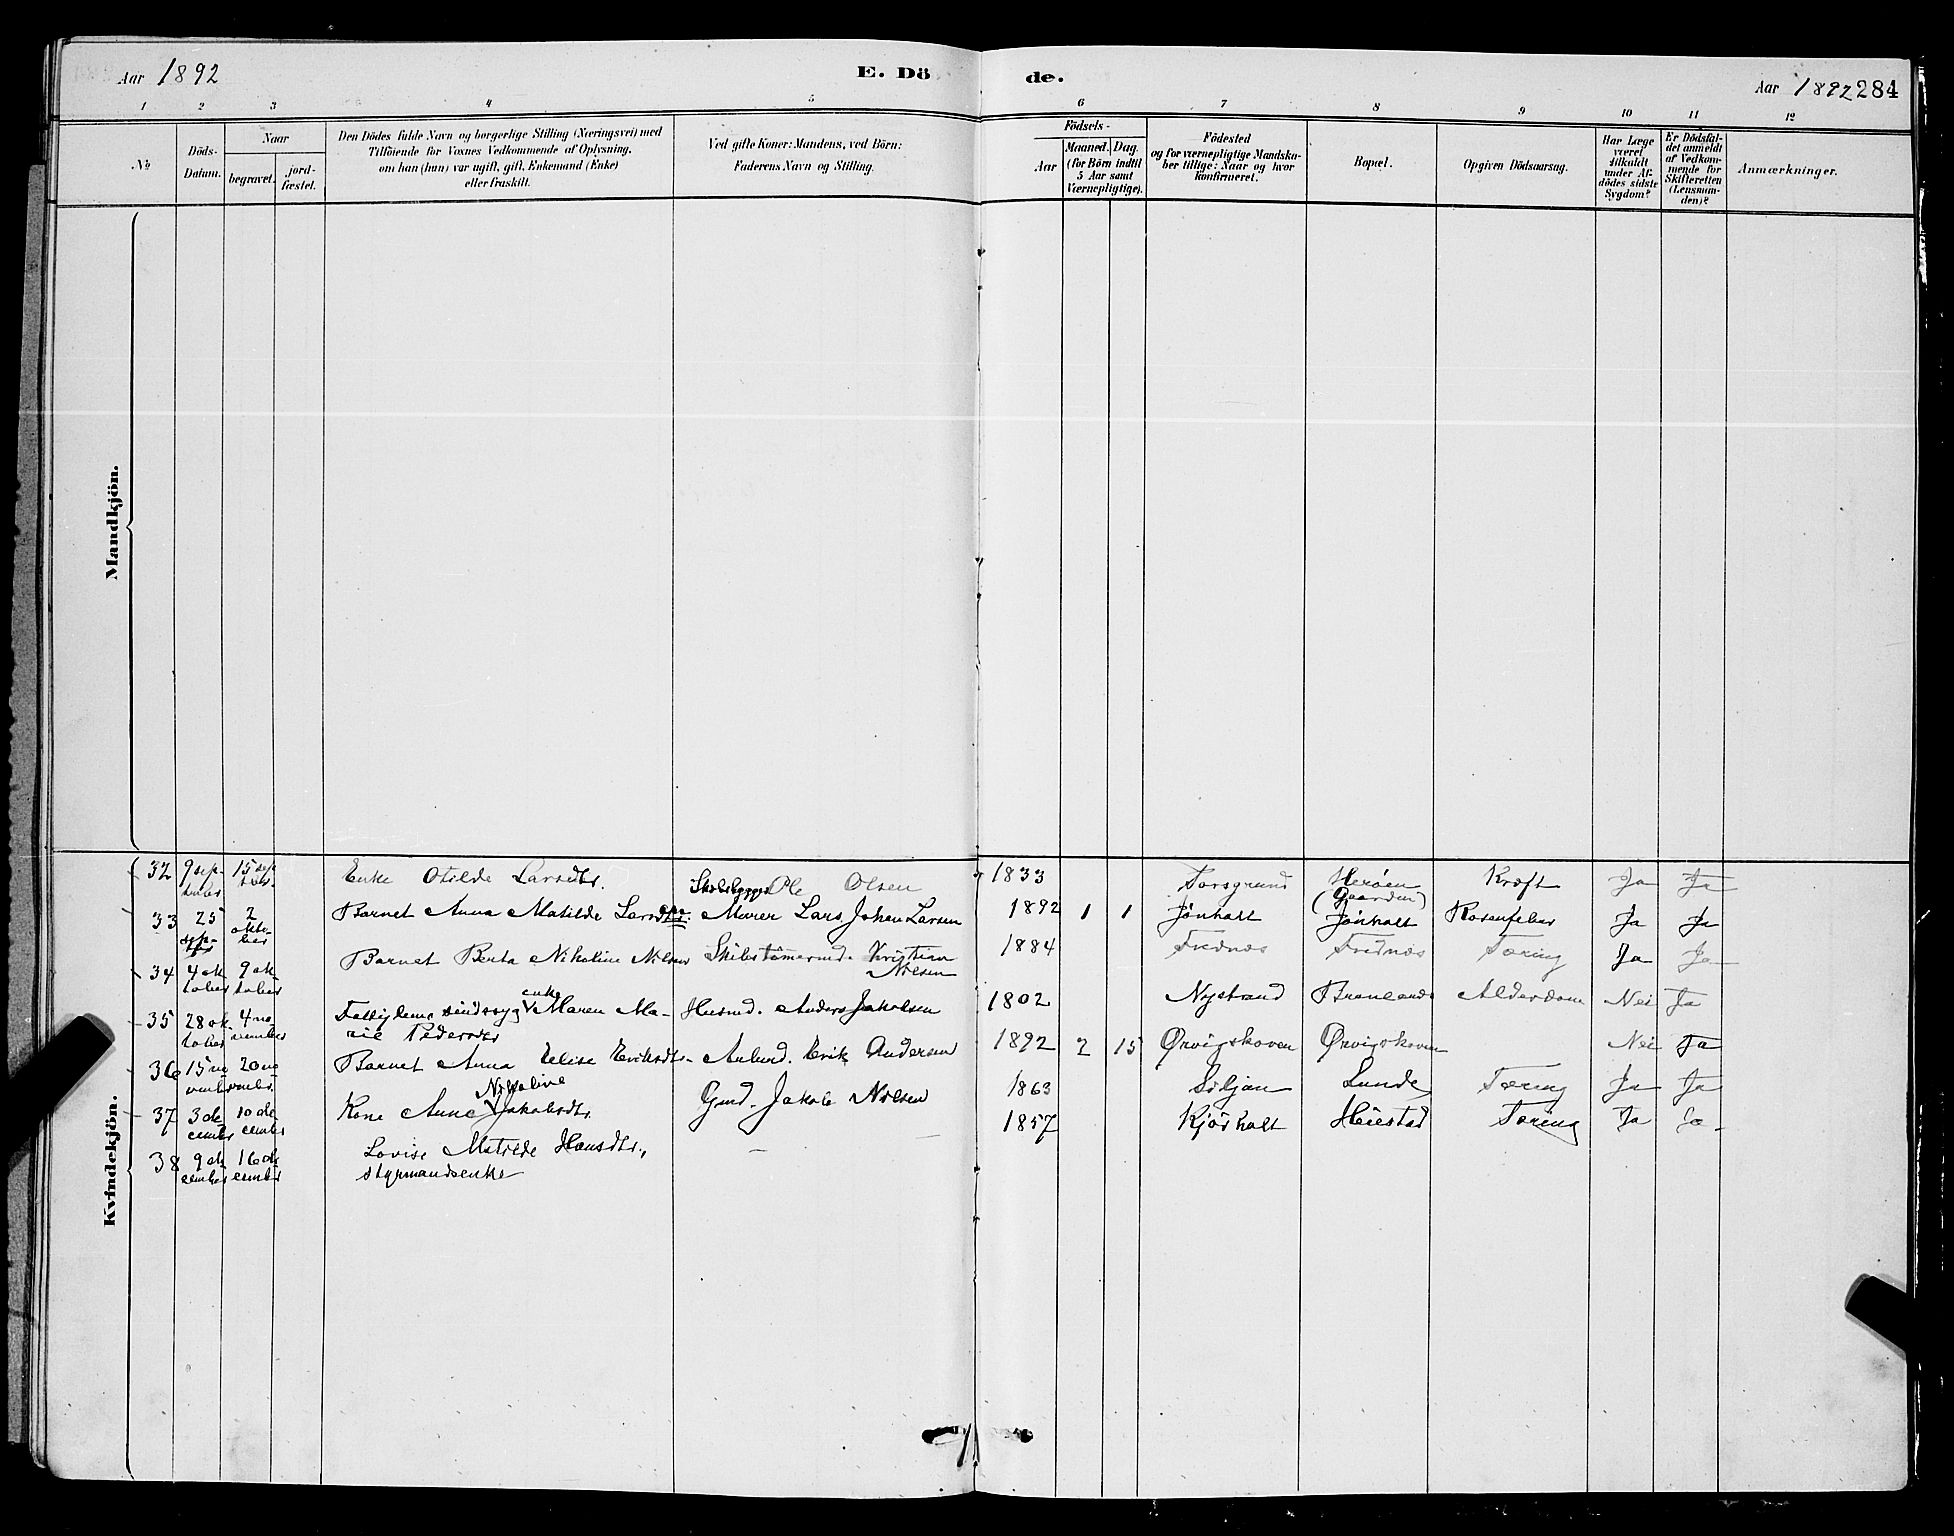 Aar 1892 E. Dö de. Aar 1892 284
1 2 3 4 5 6 7 8 9 10 11 12
No
Döds-Datum.
Naar
begravet.
jord-fæstet.
Den Dödes fulde Navn og borgerlige Stilling (Næringsvei) med
Tilföiende for Voxnes Vedkommende af Oplysning,
om han (hun) var ugift, gift, Enkemand (Enke)
eller fraskilt.
Ved gifte Koner: Mandens, ved Börn:
Faderens Navn og Stilling.
Födsels-
Aar
Maaned. Dag.
(for Börn indtil
5 Aar samt
Værnepligtige).
Födested
og for værnepligtige Mandska-
ber tillige: Naar og hvor
konfirmeret.
Bopæl.
Opgiven Dödsaarsag.
Har Læge
været
tilkaldt
under Af-
dödes sidste
Sygdom?
Er Dödsfal-
det anmeldt
af Vedkom-
mende for
Skifteretten
(Lensman-
den)?
Anmærkninger.
Mandkjön.
Kvindekjön.
32 9 sep-tember 15 sep-tember Enke Otilde Larsdtr. Ole Olsen 1833 Herøen (Gaarden) Kræft Ja Ja
33 25 sep- 2 okto-ber Barnet Anna Matilde Larsdtr. Murer Lars Johan Larsen 1892 1 1 Jønholt Jønholt Rosenfeber Ja Ja
34 4 ok-tober 9 ok-tober Barnet Berta Nikoline Nilsen Skibstømermd. Kristian Nilsen 1884 Frednæs Frednæs Tæring Ja Ja
35 28 ok-tober 4 no-vember Fattiglem sindssyg enke Maren Ma-
rie Pedersdtr Husmd. Anders Jakobsen 1802 Nystrand Alderdom Nei Ja
36 15 no-vember 20 no-vember Barnet Anna Elise Eriksdtr. Erik Andersen 1892 2 15 Ørvigskoven Ørvigskoven Nei Ja
37 3 de-cember 10 de-cember Kone Anne Nikoline Jakobsdtr. Gmd. Jakob Nilsen 1863 Siljan Lunde Tæring Ja Ja
38 9 de-cember 16 de-cember Lovise Matilde Hansdtr.,
styrmandsenke — 1857 Kjørholt Heistad Tæring Ja Ja